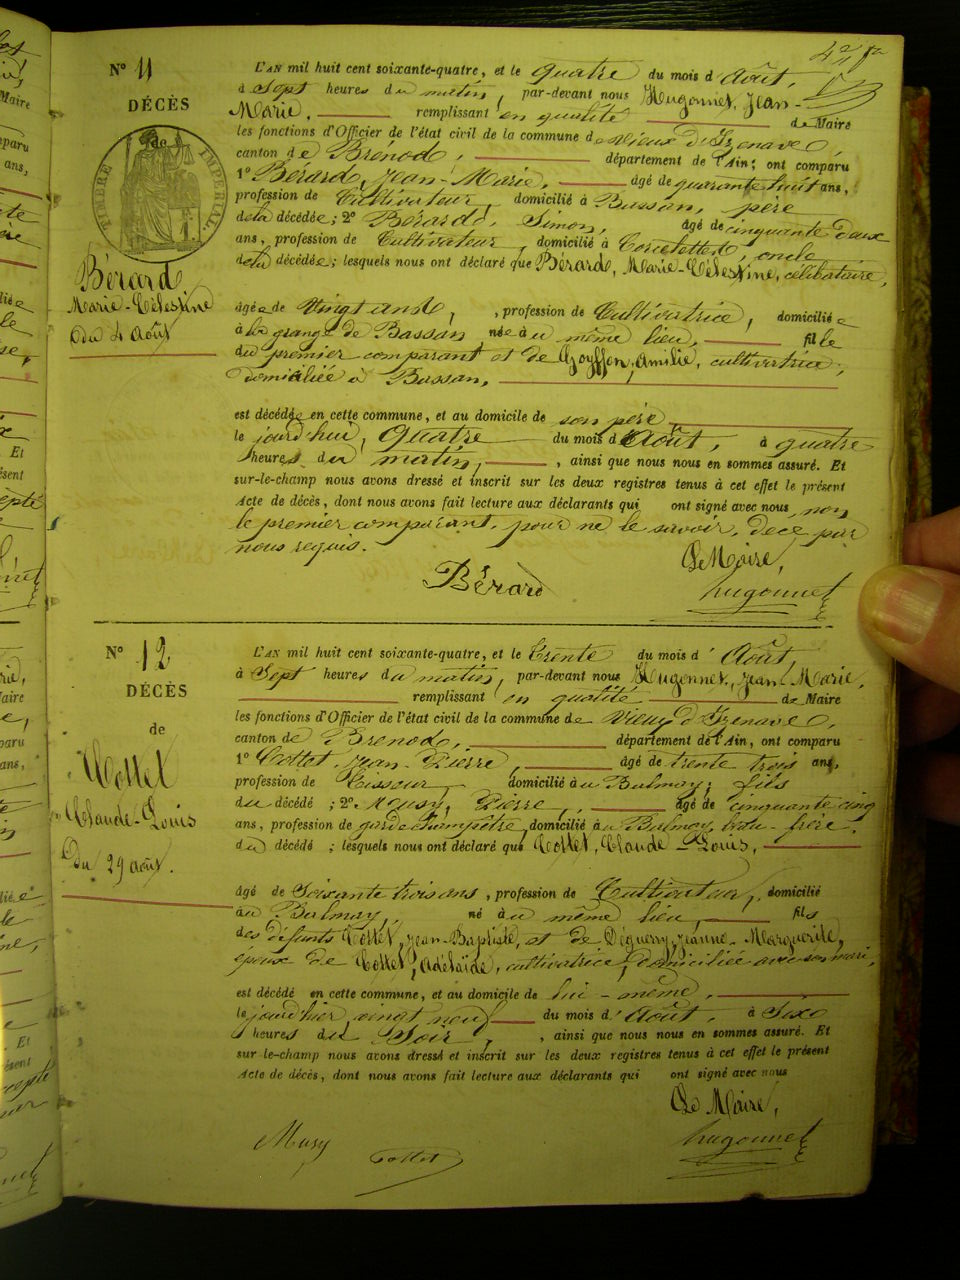 N° 11
DÉCÈS
de
TIMBRE IMPÉRIAL
Bérard
Marie-Célestine
Du 4 Août
L'AN mil huit cent soixante-quatre, et le quatre du mois d'Août,
à Sept heures du matin, par-devant nous Hugonnet, Jean-
Marie, remplissant en qualité de Maire
les fonctions d'Officier de l'état civil de la commune de Vieux d'Izenave,
canton de Brénod, département de l'Ain; ont comparu
1° Bérard, Jean-Marie, âgé de quarante huit ans,
profession de Cultivateur, domicilié à Bassan, père
de la décédée; 2° Berard, Simon, âgé de cinquante deux
ans, profession de Cultivateur, domicilié à Corcelette, oncle
de la décédée; lesquels nous ont déclaré que Bérard, Marie-Célestine, célibataire,
âgée de vingt ans, profession de Cultivatrice, domiciliée
à la grange de Bassan née au même lieu, fille
du premier comparant et de Goyffon, Amilie, cultivatrice,
domiciliée à Bassan,
est décédée en cette commune, et au domicile de son père
le jourd'hui, Quatre du mois d'Août, à quatre
heures du matin, ainsi que nous nous en sommes assuré. Et
sur-le-champ nous avons dressé et inscrit sur les deux registres tenus à cet effet le présent
Acte de décès, dont nous avons fait lecture aux déclarants qui ont signé avec nous, non
le premier comparant, pour ne le savoir, de ce par
nous requis.
Le Maire,
Bérard
hugonnet
N° 12
DÉCÈS
de
Cottet
Claude-Louis
Du 29 août.
L'AN mil huit cent soixante-quatre, et le trente du mois d'Août,
à Sept heures du matin, par-devant nous Hugonnet, Jean-Marie,
remplissant en qualité de Maire
les fonctions d'Officier de l'état civil de la commune de Vieux d'Izenave,
canton de Brenod, département de l'Ain, ont comparu
1° Cottet, Jean-Pierre, âgé de trente trois ans,
profession de Tisseur domicilié au Balmay; fils
du décédé; 2° Musy, Pierre, âgé de cinquante cinq
ans, profession de garde champêtre, domicilié au Balmay, beau-frère
du décédé; lesquels nous ont déclaré que Cottet, Claude-Louis,
âgé de Soixante trois ans, profession de Cultivateur, domicilié
au Balmay, né au même lieu, fils
des défunts Cottet, Jean-Baptiste, et de Déguerry, Jeanne-Marguerite,
époux de Cottet, Adélaïde, cultivatrice, domiciliée avec son mari,
est décédé en cette commune, et au domicile de lui-même,
le jour d'hier, vingt neuf du mois d'Août, à Six
heures du Soir, ainsi que nous nous en sommes assuré. Et
sur-le-champ nous avons dressé et inscrit sur les deux registres tenus à cet effet le présent
Acte de décès, dont nous avons fait lecture aux déclarants qui ont signé avec nous
Le Maire,
Musy
Cottet
hugonnet